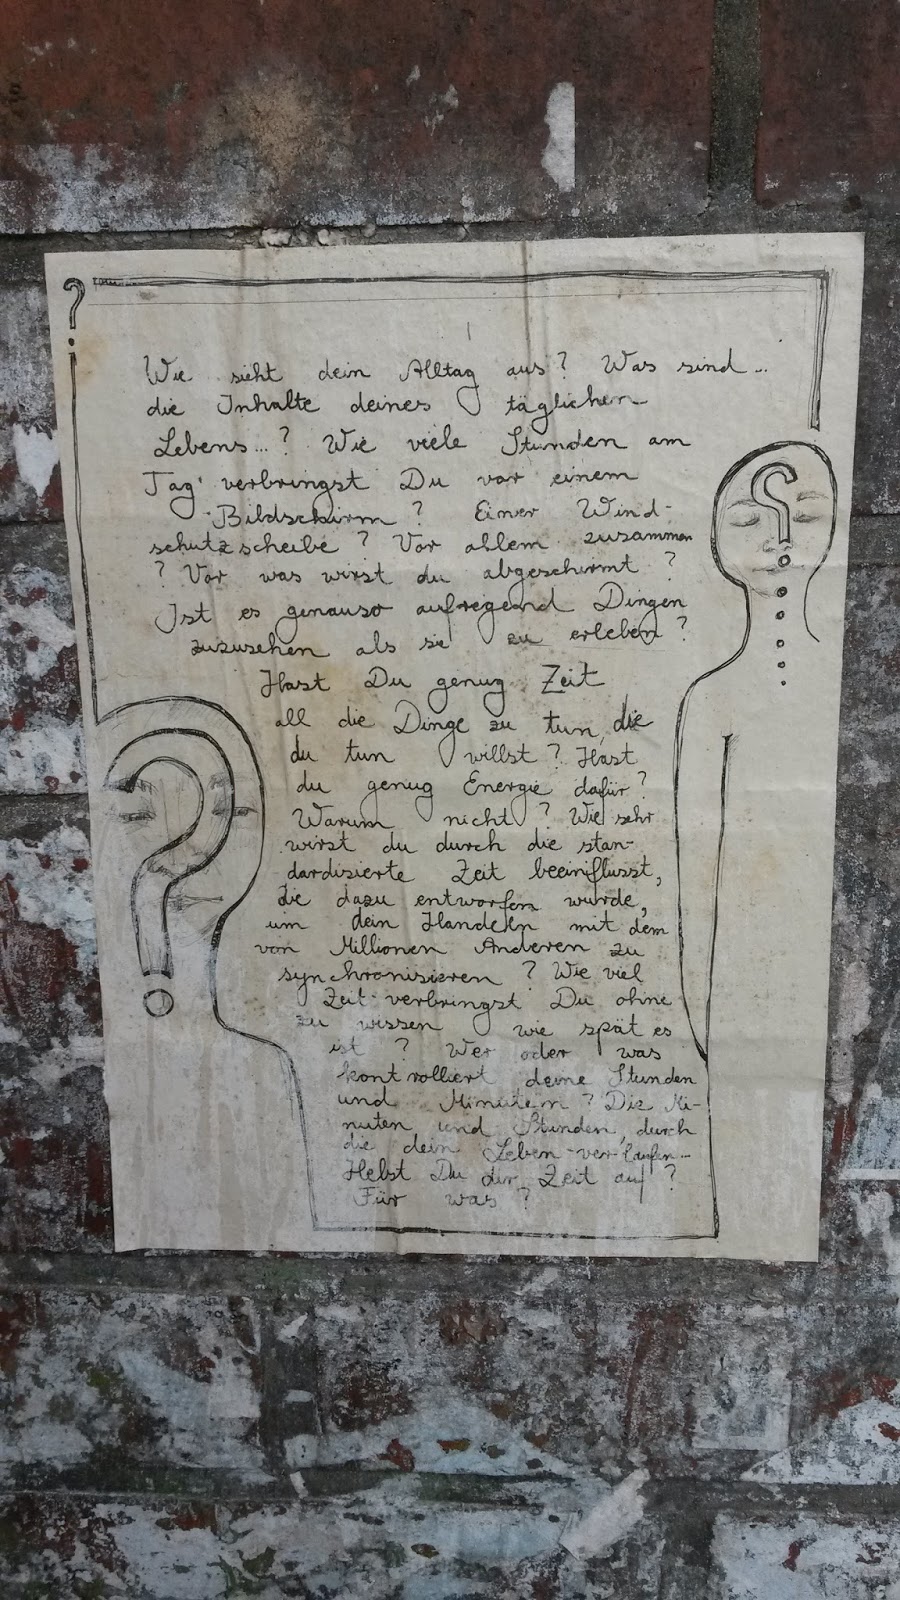 Wie sieht dein Alltag aus? Was sind...
die Inhalte deines täglichen
Lebens...? Wie viele Stunden am
Tag verbringst Du vor einem
Bildschirm? Einer Wind-
schutzscheibe? Vor allem zusammen
? Vor was wirst du abgeschirmt?
Ist es genauso aufregend Dingen
zuzusehen als sie zu erleben?
Hast Du genug Zeit
all die Dinge zu tun, die
du tun willst? Hast
du genug Energie dafür?
Warum nicht? Wie sehr
wirst du durch die stan-
dardisierte Zeit beeinflusst,
die dazu entworfen wurde,
um dein Handeln mit dem
von Millionen Anderen zu
synchronisieren? Wie viel
Zeit verbringst Du ohne
zu wissen wie spät es
ist? Wer oder was
kontrolliert deine Stunden
und Minuten? Die Mi-
nuten und Stunden, durch
die dein Leben verlaufen...
Hebst Du dir Zeit auf?
Für was?